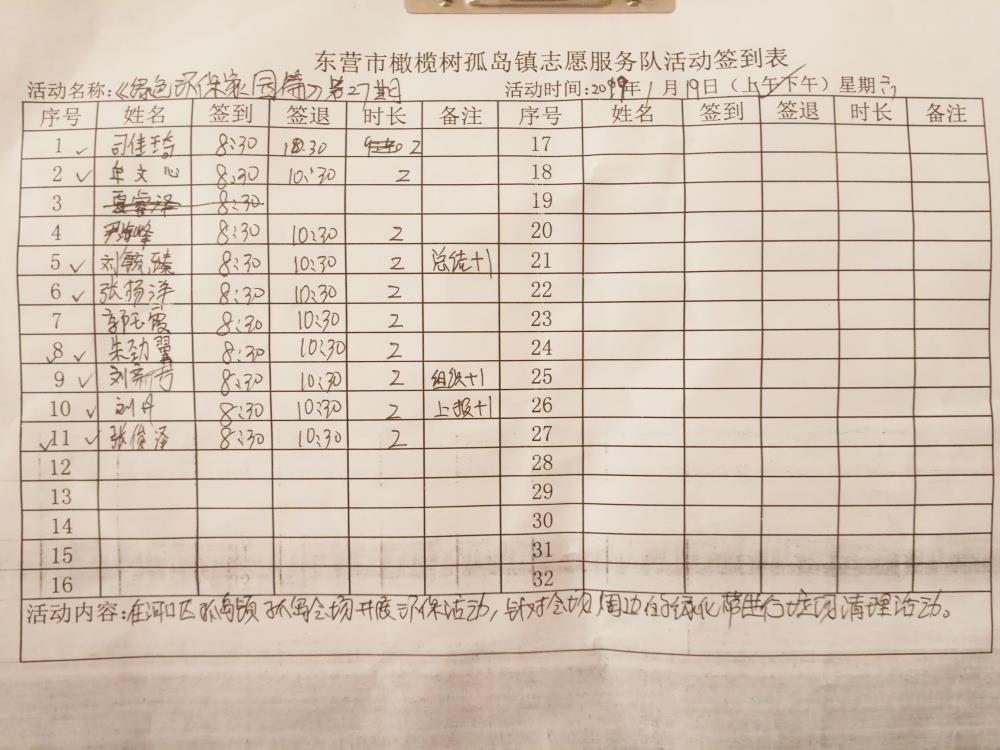 东营市橄榄树孤岛镇志愿服务队活动签到表
活动名称:《绿色环保家园筹》第27期 活动时间:2019年1月19日（上午下午）星期六
序号 姓名 签到 签退 时长 备注 序号 姓名 签到 签退 时长 备注
1 司佳琦 8:30 10:30 2 17
2 牟文心 8:30 10:30 2 18
3 夏睿泽 8:30 19
4 8:30 10:30 2 20
5 刘毓臻 8:30 10:30 2 总结+1 21
6 张扬泽 8:30 10:30 2 22
7 郭玉霞 8:30 10:30 2 23
8 朱劲翼 8:30 10:30 2 24
9 刘新芳 8:30 10:30 2 组织+1 25
10 刘丹 8:30 10:30 2 上报+1 26
11 张俊泽 8:30 10:30 2 27
12 28
13 29
14 30
15 31
16 32
活动内容:在河口区孤岛镇孤岛会场开展环保活动，针对会场周边的绿化带进行垃圾清理活动。